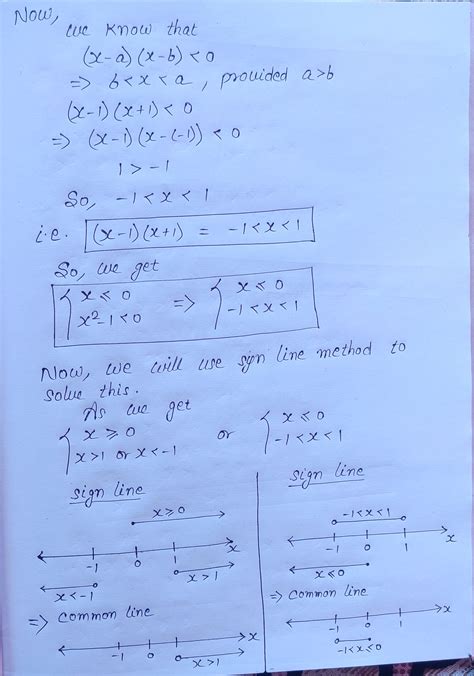 Now,
we know that
(x-a)(x-b) < 0
⇒ b < x < a, provided a > b
(x-1)(x+1) < 0
⇒ (x-1)(x-(-1)) < 0
1 > -1
So, -1 < x < 1
i.e. (x-1)(x+1) = -1 < x < 1
So, we get
{ x ≤ 0 ⇒ { x ≤ 0
{ x²-1 < 0 { -1 < x < 1
Now, we will use sign line method to
solve this.
As we get
{ x ≥ 0 or { x ≤ 0
{ x > 1 or x < -1 { -1 < x < 1
sign line
x ≥ 0
-1 0 1 x
x < -1 x > 1
⇒ Common line
-1 0 1 x
x > 1
sign line
-1 < x < 1
-1 0 1 x
x ≤ 0
⇒ Common line
-1 0 1 x
-1 < x ≤ 0